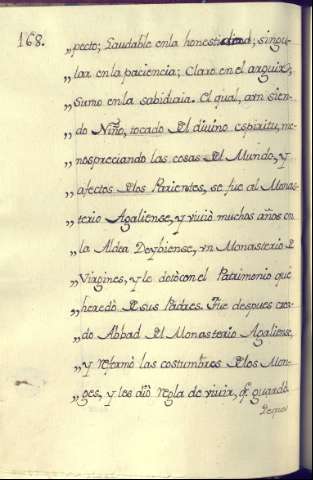 168.
„pecto; Saudable en la honestidad; singu-
„lar en la paciencia; Claro en el arguir;
„Sumo en la sabiduria. El qual, aun sien-
„do Niño, tocado del divino espiritu, me-
„nospreciando las cosas del Mundo, y
„afectos de los Parientes, se fue al Monas-
„terio Agaliense, y vivió muchos años en
„la Aldea Deybiense, vn Monasterio de
„Virgines, y le dotò con el Patrimonio que
„heredò de sus Padres. Fue despues crea-
„do Abbad del Monasterio Agaliense,
„y reformò las costumbres de los Mon-
„ges, y les diò regla de vivir, q̃ guardò.
Despues